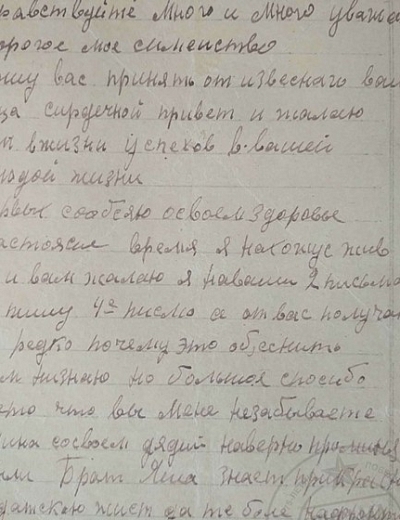 равствуйте много и много уважа
орогое мое симейство
ошу вас принять от извеснаго вам
ца сирдечной привет и жалаю
вжизни успехов в вашей
молодой жизни
рвых сообсяю освоем здоровье
астоясие время я нахожус жив
и вам жалаю я наваши 2 письма
пишу 4е писмо а от вас получа
редко почему это обеснить
м низнаю но большоя спосибо
ето что вы мене незабываете
сосвоем дядий наверно
Брат знает
жист да те боле